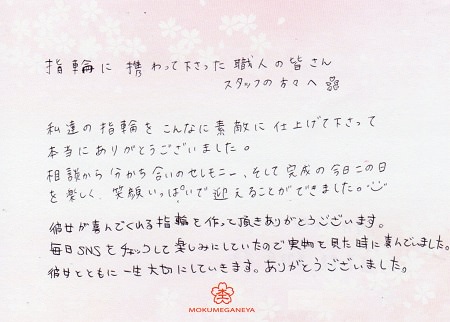 指輪に携わって下さった職人の皆さん
スタッフの方々へ
私達の指輪をこんなに素敵に仕上げて下さって
本当にありがとうございました。
相談から分かち合いのセレモニー、そして完成の今日この日
を楽しく、笑顔いっぱいで迎えることができました。
彼女が喜んでくれる指輪を作って頂きありがとうございます。
毎日SNSをチェックして楽しみにしていたので実物を見た時に喜んでいました。
彼女とともに一生大切にしていきます。ありがとうございました。
MOKUMEGANEYA